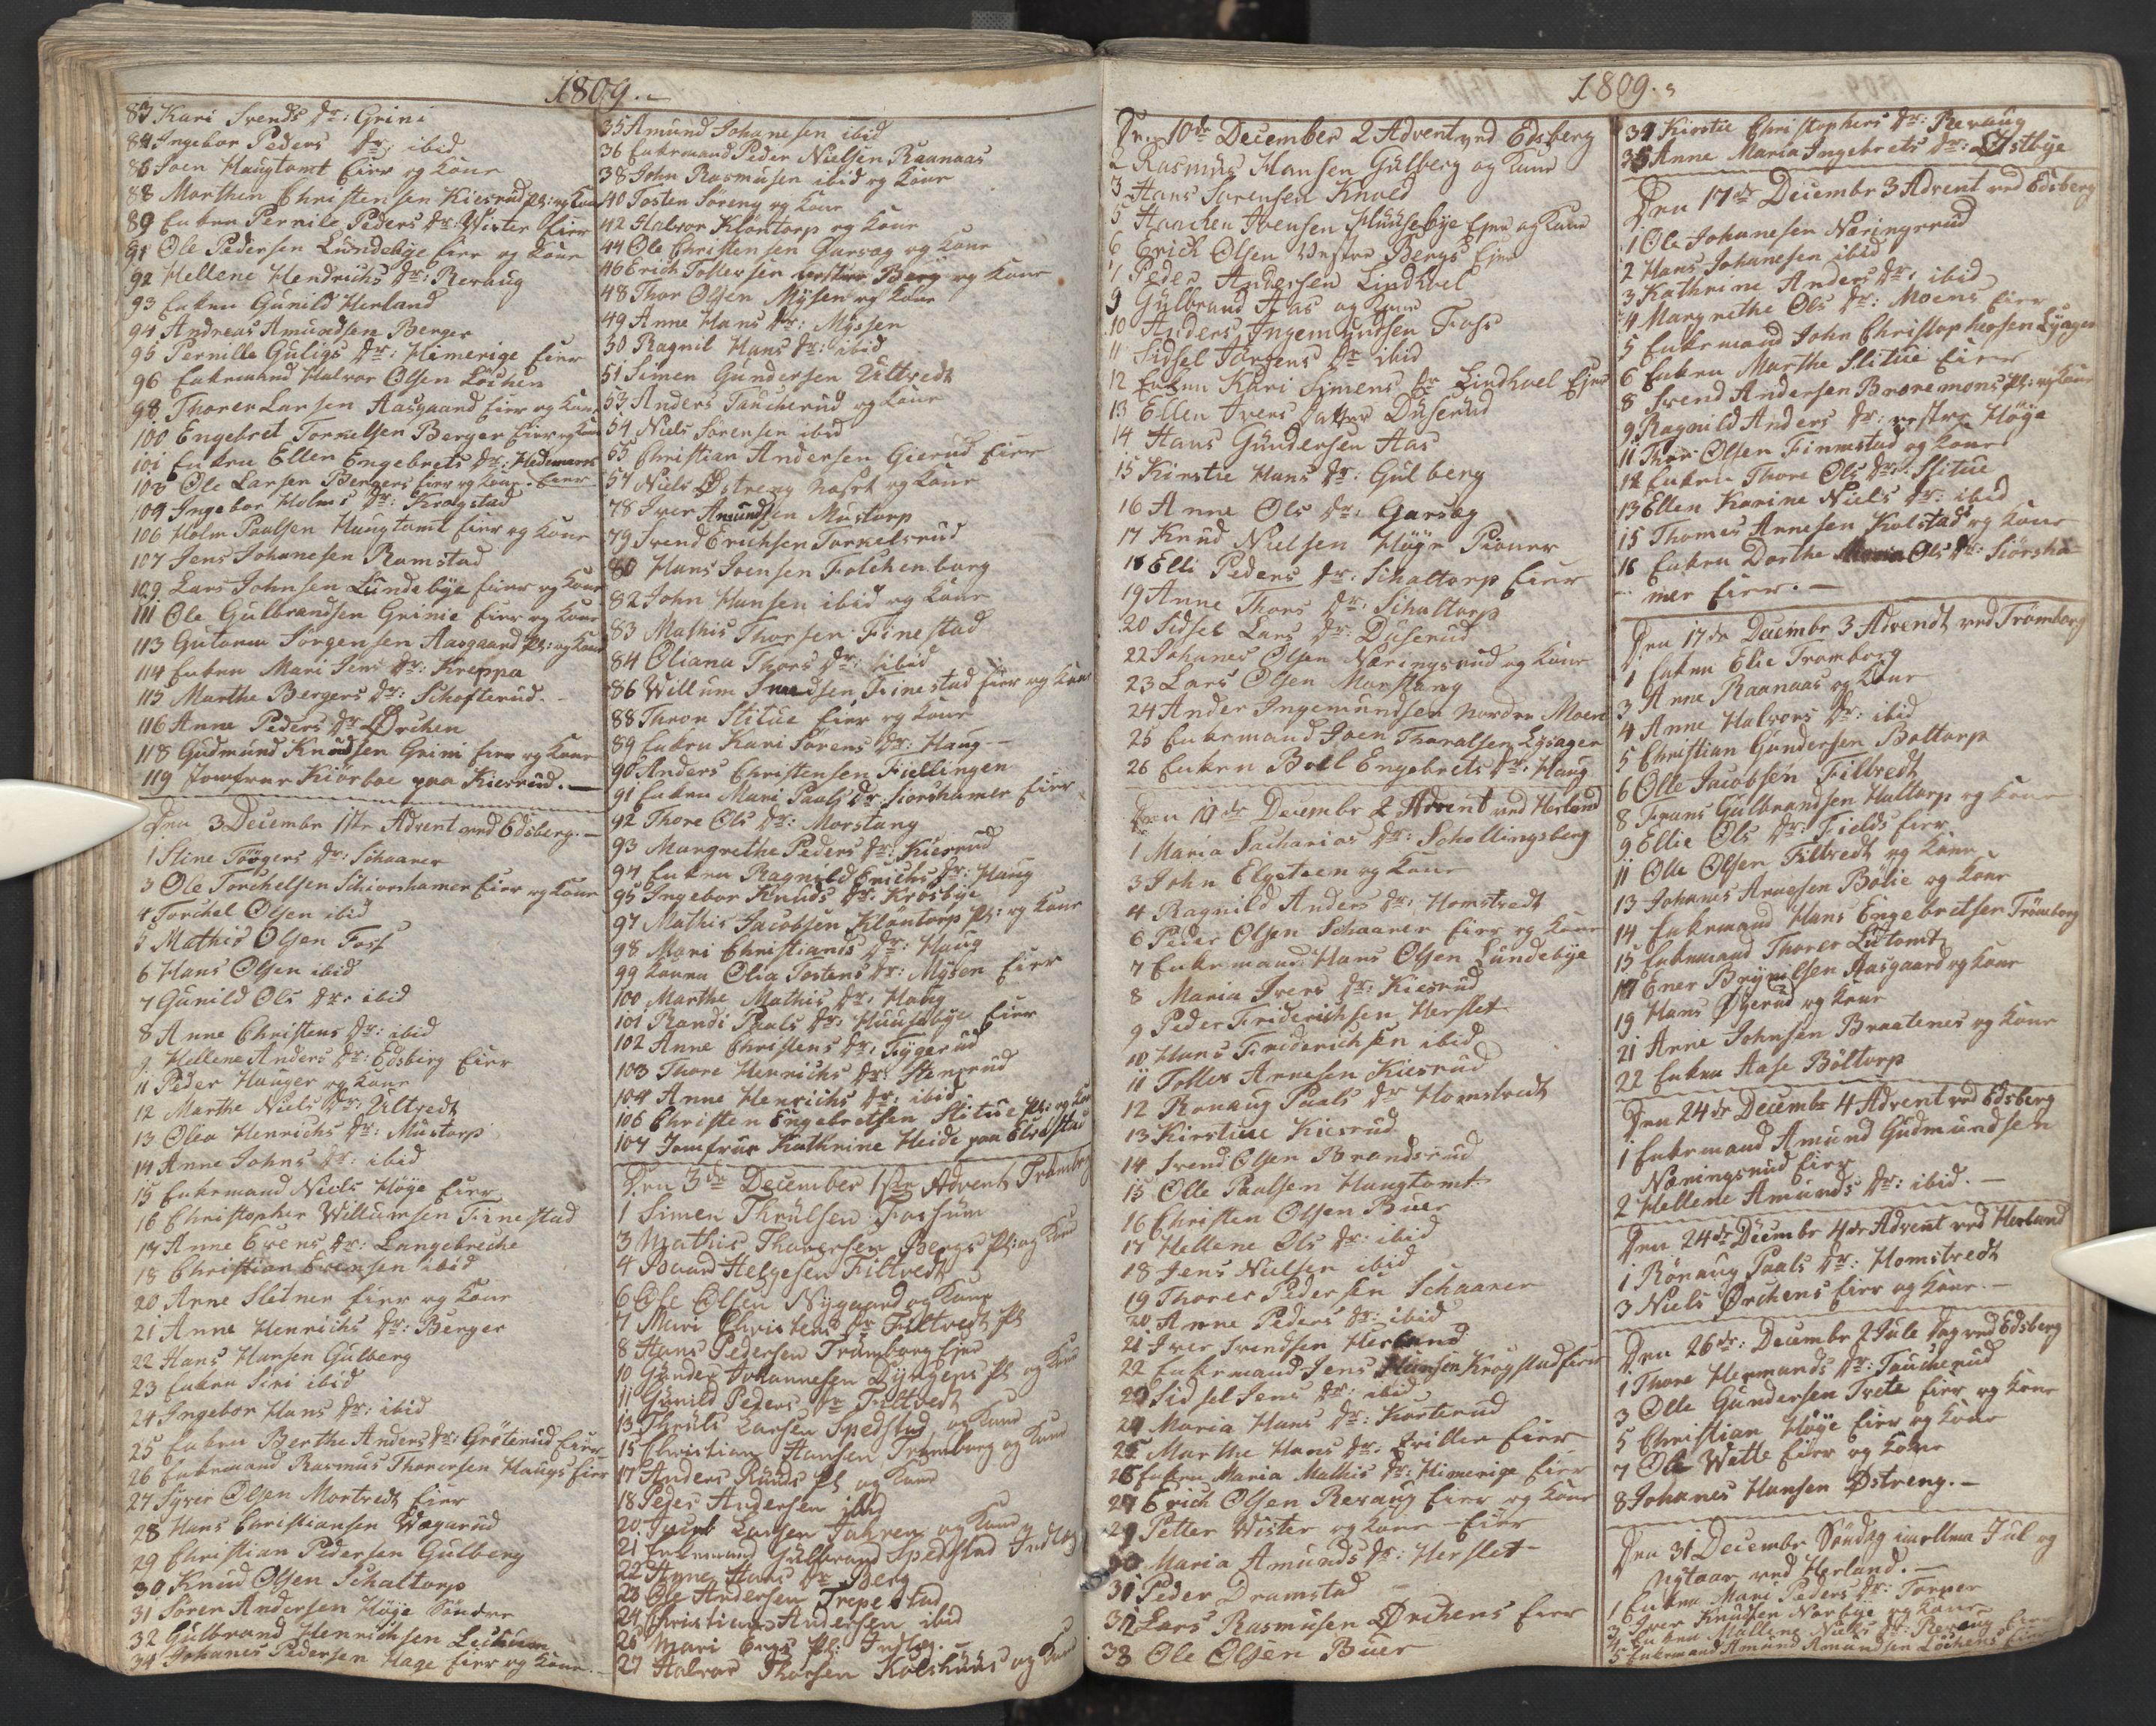 1809.
83 Kari Svends dr: Grini
84 Ingebor Peders dr: ibid
86 Joen Haugtomt Eier og Kone
88 Marthin Christensen Kiesrud Pl: og Kone
89 Enken Pernile Peders dr: Wister Eier
91 Ole Pedersen Lundebye Eier og Kone
92 Hellene Hendrichs dr: Reraug
93 Enken Gunild Herland
94 Andreas Amundsen Berger
95 Pernille Guligs dr: Himerige Eier
96 Enkemand Halvor Olsen Löchen
98 Thorer Larsen Aasgaard Eier og Kone
100 Engebret Torkelsen Berger Eier og Kone
101 Enken Ellen Engebrets dr: Hedemarc
103 Ole Larsen Bergers Eier og Kone. Eier
104 Ingebor Holms dr: Krogstad
106 Holm Paulsen Haugtomt Eier og Kone
107 Jens Johanesen Ramstad
109 Lars Johnsen Lundebye Eier og Kone
111 Ole Gulbrandsen Grinie Eier og Kone
113 Gutorm Jörgensen Aasgaard Pl: og Kone
114 Enken Mari Jens dr: Kreppa
115 Marthe Bergers dr: Schofterud.
116 Anne Peders dr Ørchen
118 Gudmund Knudsen Grini Eier og Kone
119 Jomfrue Kiörboe paa Kiesrud.
Den 3 Decembr 1ste Advent ved Edsberg.
1 Stine Törgers dr: Schaarer
3 Ole Torchelsen Schiorshamer Eier og Kone
4 Torchel Olsen ibid
5 Mathis Olsen Foss
6 Hans Olsen ibid
7 Gunild Ols dr: ibid
8 Anne Christens dr: ibid
9 Hellene Anders dr: Edsberg Eier
11 Peder Hauger og Kone
12 Marthe Niels dr: Ultvedt
13 Olea Henrichs dr: Mustorp
14 Anne Johns dr: ibid
15 Enkemand Niels Höye Eier
16 Christopher Willumsen Finestad
17 Anne Evens dr: Langebreche
18 Christian Evensen ibid
20 Arne Sletner Eier og Kone
21 Anne Henrichs dr: Berger
22 Hans Hansen Gulberg
23 Enken Siri ibid
24 Ingebor Hans dr: ibid
25 Enken Berthe Anders dr: Gröterud Eier
26 Enkemand Rasmus Thorersen Haugs Eier
27 Syver Olsen Mortvedt Eier
28 Hans Christiansen Wægarud
29 Christian Pedersen Gulberg
30 Knud Olsen Schaltorp
31 Sören Andersen Höye Söndre
32 Gulbrand Henrichsen Lechum
34 Johanes Pedersen Hage Eier og Kone
35 Amund Johanesen ibid
36 Enkemand Peder Nielsen Raanaas
38 John Rasmusen ibid og Kone
40 Tosten Soreng og Kone
42 Halvor Klontorp og Kone
44 Ole Christensen Garsæg og Kone
46 Erich Tollersen vestre Berg og Kone
48 Thor Olsen Mysen og Kone
49 Anne Hans dr: Myssen
50 Ragnil Hans dr: ibid
51 Simen Gundersen Ultvedt
53 Anders Taucherud og Kone
54 Niels Sörensen ibid
55 Christian Andersen Gierud Eier
57 Niels Østreng Næset og Kone
78 Iver Amundsen Mustorp
79 Svend Erichsen Torkelsrud
80 Hans Joensen Folchenborg
82 John Hansen ibid og Kone
83 Mathis Thorsen Finestad
84 Oliana Thors dr: ibid
86 Willum Svendsen Finestad Eier og Kone
88 Thron Slitue Eier og Kone
89 Enken Kari Sörens dr: Haug
90 Anders Christensen Fiellingen
91 Enken Mari Paals dr: Siorshamer Eier
92 Thore Ols dr: Morstang
93 Margrethe Peders dr: Kiesrud
94 Enken Ragnild Erichs dr: Haug
95 Ingebor Knuds dr: Krosbye
97 Mathis Jacobsen Klontorp Pl: og Kone
98 Mari Christians dr: Haug
99 Konen Olia Tostens dr: Mysen Eier
100 Marthe Mathis dr: Haug
101 Randi Paals dr: Huusebye Eier
102 Anne Christens dr: Fygerud
103 Thore Henrichs dr: Stenerud
104 Anne Henrichs dr: ibid
106 Christen Engebretsen Slitue Pl: og Kone
107 Jomfrue Kathrine Heide paa Elvestad
Den 3de December 1ste Advent Trömborg
1 Simen Thrulsen Fossum
3 Mathis Thorersen Bergs Pl: og Kone
4 Baard Helgesen Filtvedt
6 Ole Olsen Nygaard og Kone
7 Mari Christens dr Filtvedt Pl
8 Hans Pedersen Trömborg Ejer
10 Gunder Johannesen Dyngens Pl og Kone
11 Gunild Peders dr Filtvedt
13 Thruls Larsen Spedstad og Kone
15 Christian Hansen Trömborg og Kone
17 Anders Runds Pl og Kone
18 Peder Andersen ibid
20 Larsen Fahren og Kone
21 Enkemand Gulbrand Spedstad Indlog
22 Anne Hans dr Berg
23 Ole Andersen Trepestad
24 Christian Andersen ibid
26 Mari Engs Pl: Indlog.
27 Halvor Thorsen Kolshuus og Kone
1809.
Den 10de December 2 Advent ved Edsberg
2 Rasmus Hansen Gulberg og Kone
3 Hans Sorensen Knold
5 Hanchen Ivensen Huusebye Ejer og Kone
6 Erich Olsen Vestre Bergs Ejer
7 Peder Andersen Lindhvel
9 Gulbrand Aas og Kone
10 Anders Ingemundsen Foss
11 Sidsel Jörgens dr ibid
12 Enken Kari Simens dr Lindhvel Ejer
13 Ellen Ivers datter Duserud
14 Hans Gundersen Aas
15 Kirstie Hans dr: Gulberg
16 Anne Ols dr: Garsæg
17 Knud Nielsen Höye Pioner
18 Elli Peders dr: Schaltorp Eier
19 Anne Thors dr: Schaltorp
20 Sidsel Lars dr: Duserud
22 Johanes Olsen Næringsrud og Kone
23 Lars Olsen Morstang
24 Ander Ingemundsen nordre Moen
25 Enkemand Joen Thoralsen Lysager
26 Enken Boel Engebrets dr: Haug
Den 10de Decembr 2 Advent ved Herland
1 Maria Sacharias dr: Schollingsberg
3 John Elgeteen og Kone
4 Ragnild Anders dr: Homstvedt
6 Peder Olsen Schaarer Eier og Kone
7 Enkemand Hans Olsen Lundebye
8 Maria Ivers dr: Kiesrud
9 Peder Friderichsen Herslet
10 Hans Friderichsen ibid
11 Toller Arnesen Kiesrud
12 Ronaug Paals dr Homstvedt
13 Kirstine Kiesrud
14 Svend Olsen Brandsrud
15 Olle Paalsen Haugtomt
16 Christen Olsen Buer
17 Hellene Ols dr: ibid
18 Jens Nielsen ibid
19 Thorer Pedersen Schaarer
20 Anne Peders dr: ibid
21 Iver Svendsen Herland
22 Enkemand Jens Hansen Krogstad Eier
23 Sidsel Jens dr: ibid
24 Maria Hans dr: Korterud
25 Marthe Hans dr: Eier
26 Enken Maria Mathis dr: Himerige Eier
27 Erich Olsen Reraug Eier og Kone
29 Petter Wister og Kone - Eier
30 Maria Amunds dr: Herslet
31 Peder Dramstad
32 Lars Rasmusen Ørchens Eier
33 Ole Olsen Buer
34 Kirstie Christophers dr: Reraug
35 Anne Maria Ingebrets dr: Østbye
Den 17de Decembr 3 Advent ved Edsberg
1 Ole Johanesen Næringsrud
2 Hans Johanesen ibid
3 Kathrine Anders dr: ibid
4 Margrethe Ols dr: Moens Eier
5 Enkemand John Christophersen Lysager
6 Enken Marthe Slitue Eier
8 Svend Andersen Braremons Pl: og Kone
9 Ragnild Anders dr: vestre Höye
11 Thor Olsen Finnestad og Kone
12 Enken Thore Ols dr: Slitue
13 Ellen Karine Niels dr: ibid
15 Thomes Arnesen Kolstad og Kone
16 Enken Dorthe Maria Ols dr: Siörsha-
mer Eier.
Den 17de Decembr 3 Advendt ved Trömborg
1 Enken Elie Tromborg
3 Arne Raanaas og Kone
4 Anne Halvors dr: ibid
5 Christian Gundersen Boltorp
6 Olle Jacobsen Filtvedt
8 Frans Gulbrandsen Haltorp og Kone
9 Ellie Ols dr: Fields Eier
11 Olle Olsen Filtvedt og Kone
13 Johanes Arnesen Bölie og Kone
14 Enkemand Hans Engebretsen Trömborg
15 Enkemand Thorer Lutomt
17 Ener Brynilsen Aasgaard og Kone
19 Hans Ø og Kone
21 Arne Johnsen Braatenes og Kone
22 Enken Aase Böltorp
Den 24de Decembr 4 Advent ved Edsberg
1 Enkemand Amund Gudmundsen
Næringsrud Eier
2 Hellene Amunds dr: ibid.
Den 24de Decembr 4de Advent ved Herland
1 Rönaug Paals dr: Homstvedt
3 Niels Ørchens Eier og Kone.
Den 26de: Decembr 2 Jule dag ved Edsberg
1 Thore Hermands dr: Taucherud
3 Olle Gundersen Trete Eier og Kone
5 Christian Höye Eier og Kone
7 Ole Wette Eier og Kone
8 Johanes Hansen Østreng.
Den 31 Decembr Söndag imellem Jul og
Nytaar ved Herland.
1 Enken Mari Peders dr: Torper
3 Iver Knudsen Norbye og Kone
4 Enken Mallene Niels dr: Reraug Eier
5 Enkemand Amund Amundsen Löchens Eier